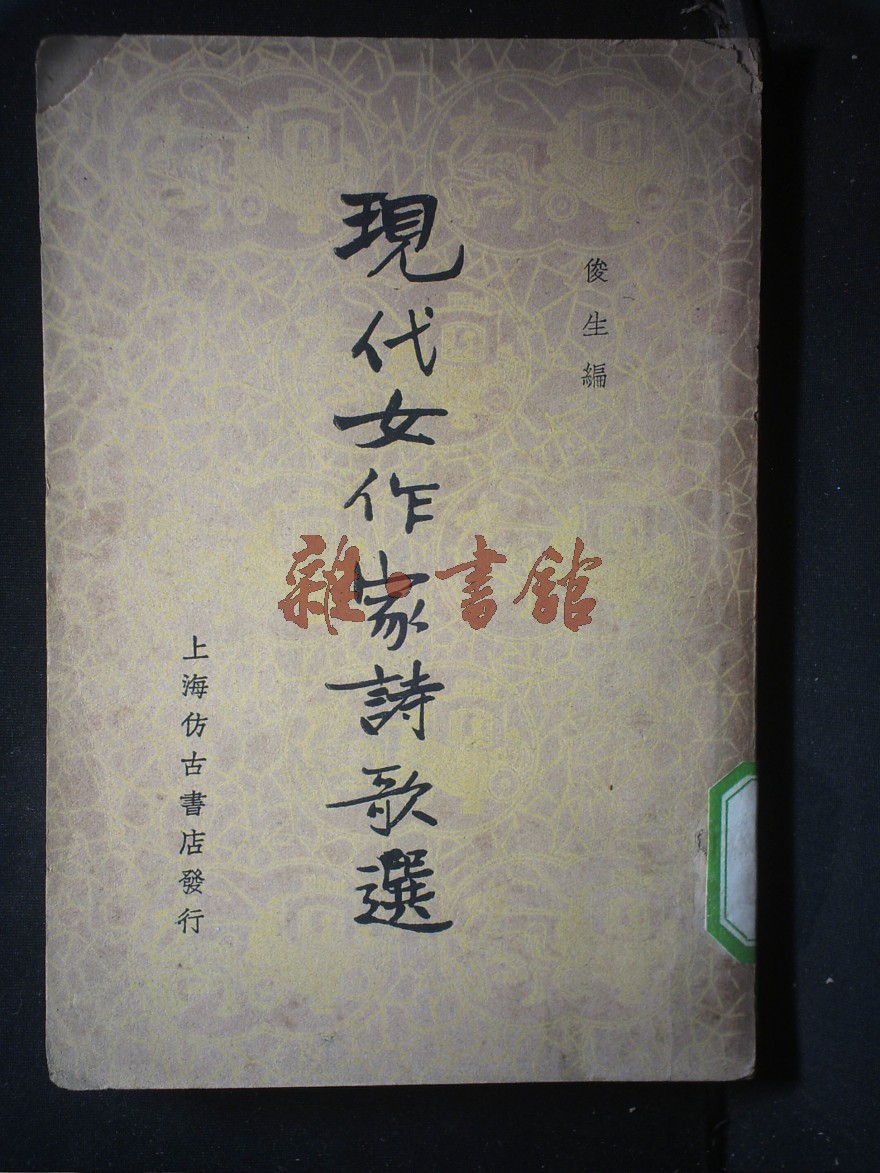 俊生編
現代女作家詩歌選
上海仿古書店發行
雜·書館